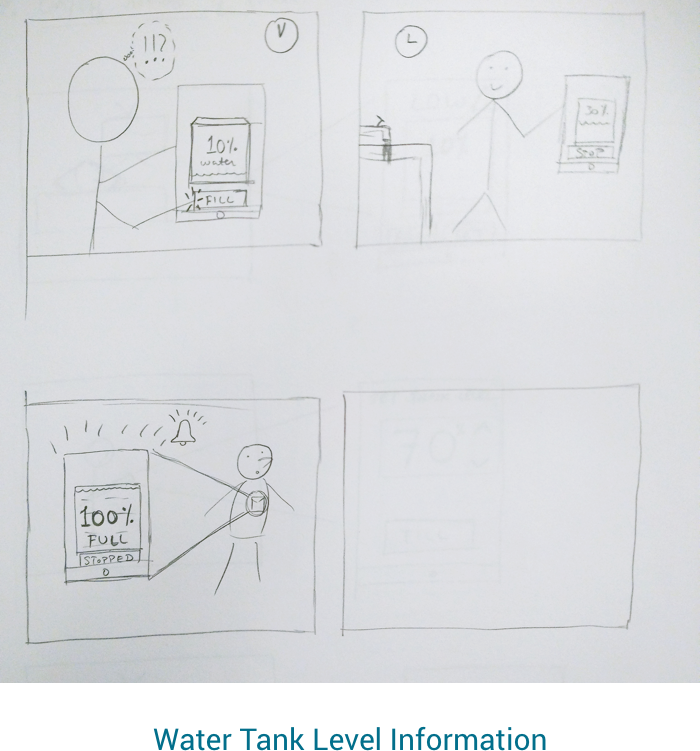 !!?
...
V
10%
water
FILL
L
30%
STOP
100%
FULL
STOPPED
Water Tank Level Information